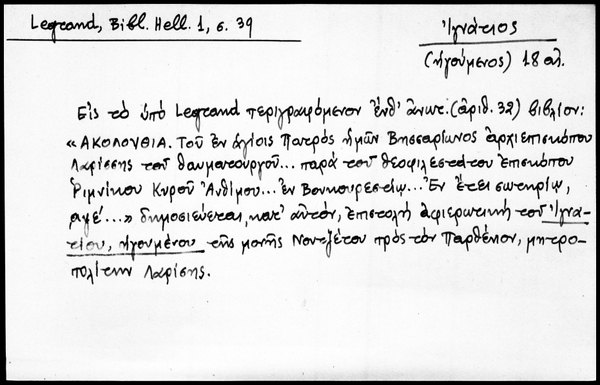 Legrand, Bibl. Hell. 1, σ. 39
Ἰγνάτιος
(ἡγούμενος) 18 αἰ.
Εἰς τὸ ὑπὸ Legrand περιγραφόμενον ἔνθ' ἀνωτ. (ἀριθ. 32) βιβλίον:
« ΑΚΟΛΟΥΘΙΑ. Τοῦ ἐν ἁγίοις Πατρὸς ἡμῶν Βησσαρίωνος ἀρχιεπισκόπου
Λαρίσσης τοῦ θαυματουργοῦ... παρὰ τοῦ θεοφιλεστάτου ἐπισκόπου
Ῥιμνίκου Κυροῦ Ἀνθίμου... ἐν Βουκουρεστίῳ... Ἐν ἔτει σωτηρίῳ,
αψέ...» δημοσιεύεται, κατ' αὐτόν, ἐπιστολὴ ἀφιερωτικὴ τοῦ Ἰγνα-
τίου, ἡγουμένου τῆς μονῆς Νουτζέτου πρὸς τὸν Παρθένιον, μητρο-
πολίτην Λαρίσης.